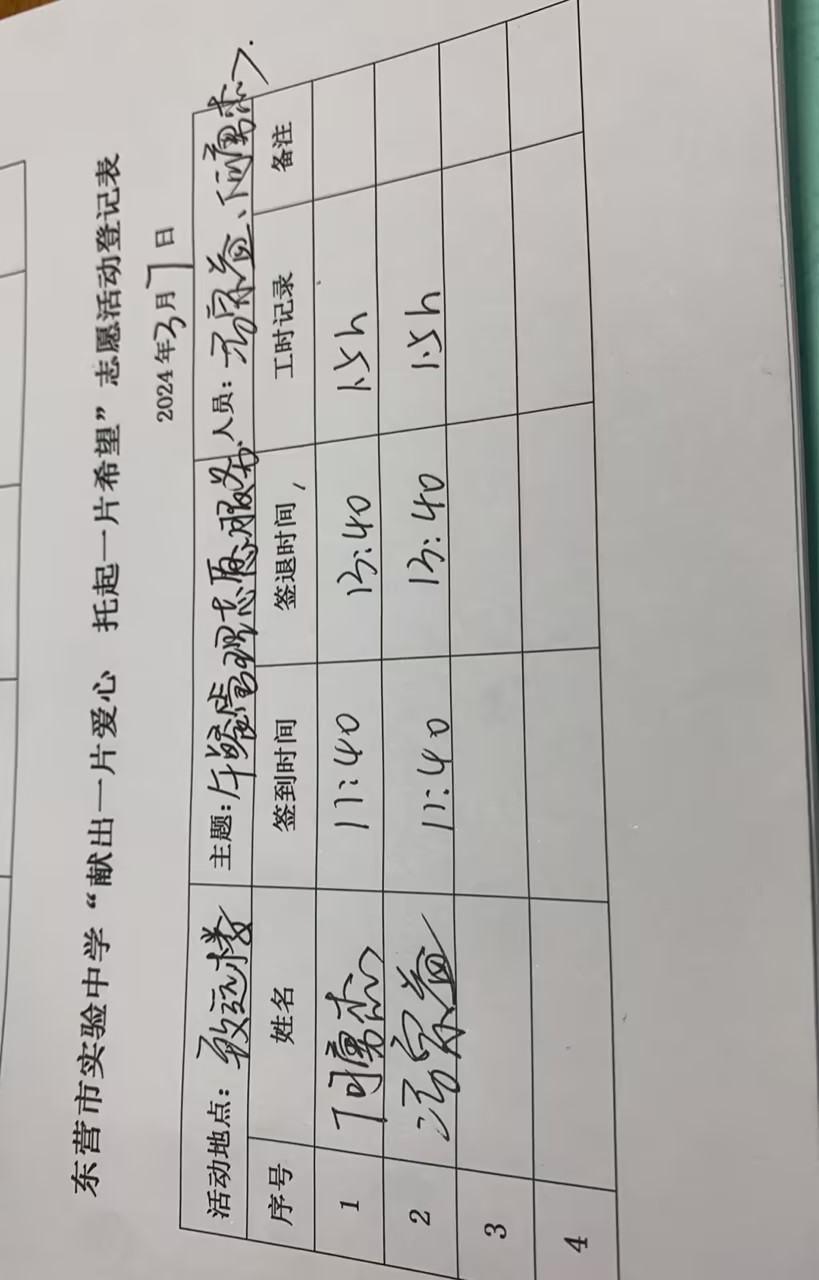 东营市实验中学“献出一片爱心 托起一片希望”志愿活动登记表
2024年3月7日
活动地点：致远楼 主题：午餐管理志愿服务 人员：
序号 姓名 签到时间 签退时间 工时记录 备注
1 11:40 13:40 1.5h
2 11:40 13:40 1.5h
3
4